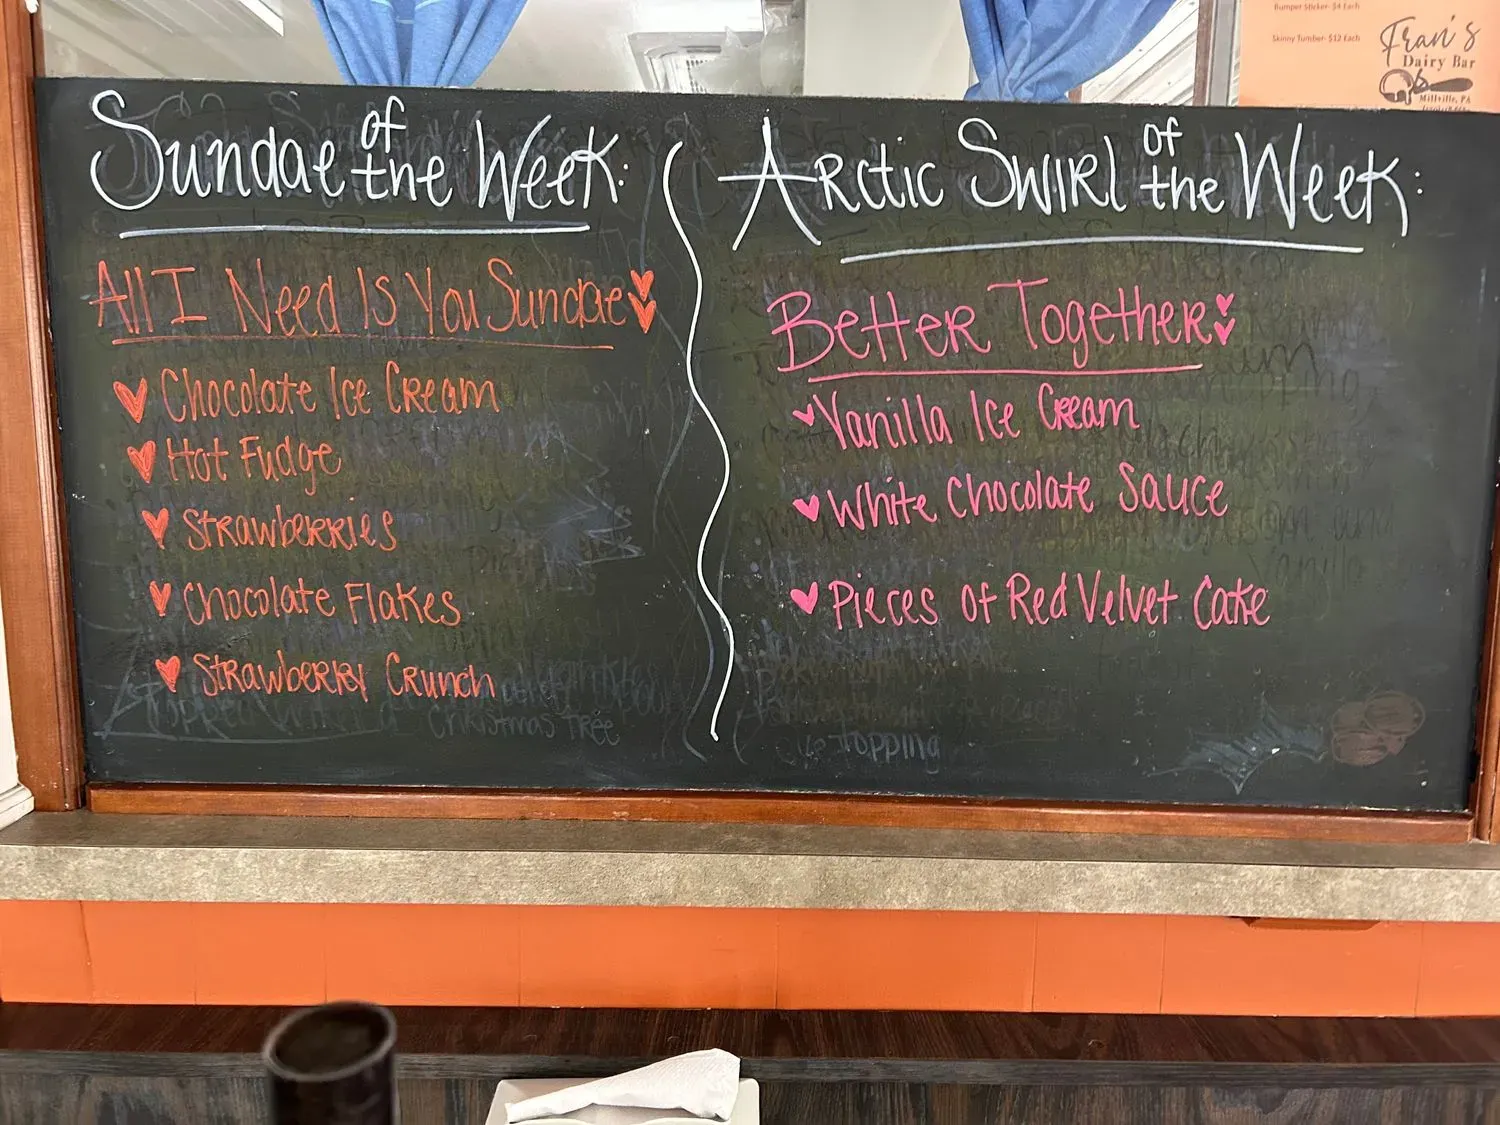 Bumper Sticker- $4 Each
Skinny Tumber- $12 Each
Fran's
Dairy Bar
Millville, PA
Sundae of the Week:
All I Need Is You Sundae
Chocolate Ice Cream
Hot Fudge
Strawberries
Chocolate Flakes
Strawberry Crunch
Christmas Tree
Arctic Swirl of the Week:
Better Together
Vanilla Ice Cream
White Chocolate Sauce
Pieces of Red Velvet Cake
topping